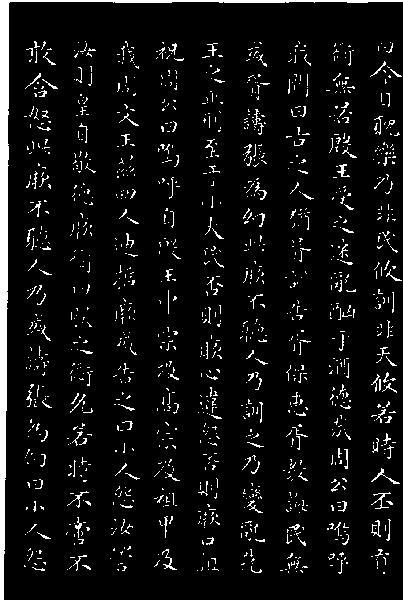 曰今日耽樂乃非民攸訓非天攸若時人丕則有
愆無若殷王受之迷亂酗于酒德哉周公曰嗚呼
我聞曰古之人猶胥訓告胥保惠胥教誨民無
或胥譸張為幻此厥不聽人乃訓之乃變亂先
王之正刑至于小大民否則厥心違怨否則厥口詛
祝周公曰嗚呼自殷王中宗及高宗及祖甲及
我周文王茲四人迪哲厥或告之曰小人怨汝詈
汝則皇自敬德厥愆曰朕之愆允若時不啻不
敢含怒此厥不聽人乃或譸張為幻曰小人怨